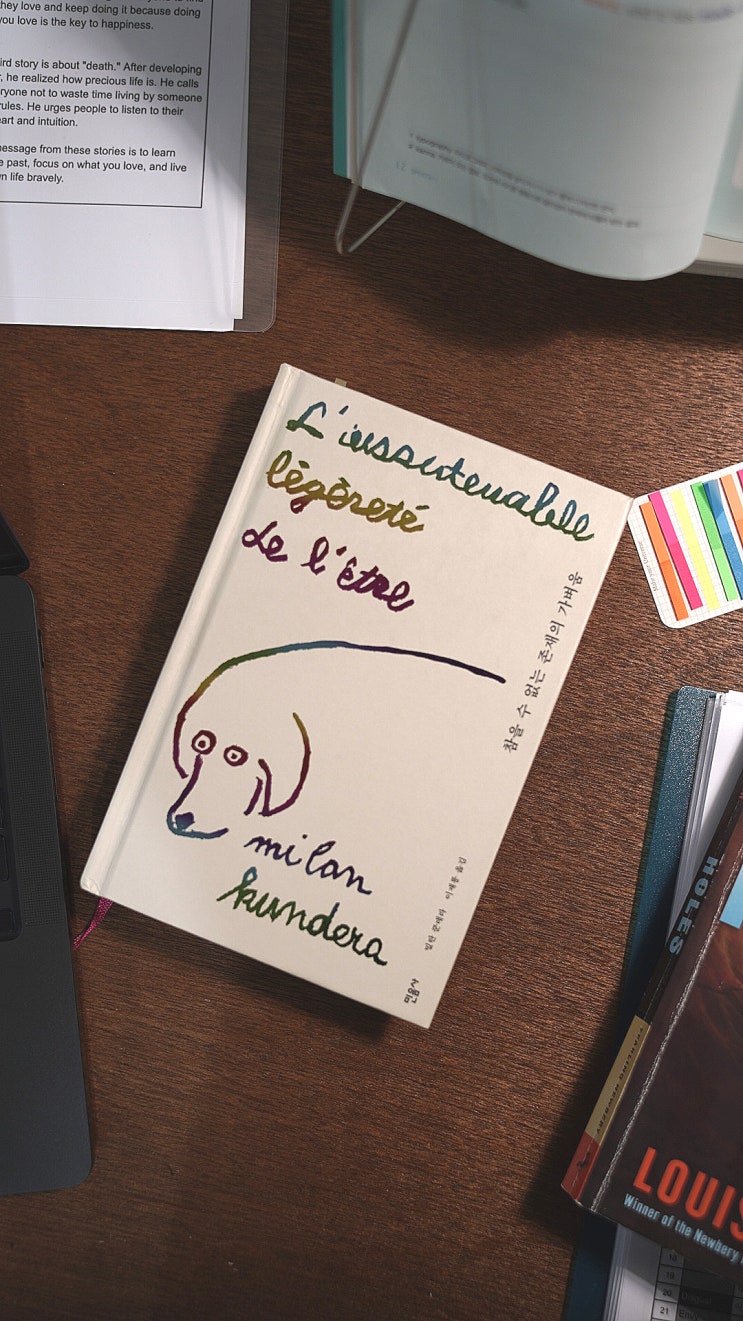 they love and keep doing it because doing
you love is the key to happiness.
ird story is about "death." After developing
, he realized how precious life is. He calls
ryone not to waste time living by someone
rules. He urges people to listen to their
art and intuition.
message from these stories is to learn
e past, focus on what you love, and live
n life bravely.
L'insoutenable
légèreté
de l'être
참을 수 없는 존재의 가벼움
milan
kundera
밀란 쿤데라 이재룡 옮김
민음사
HOLES
YEARLING NEWBERY
LOUIS
Winner of the Newbery
19
20
21